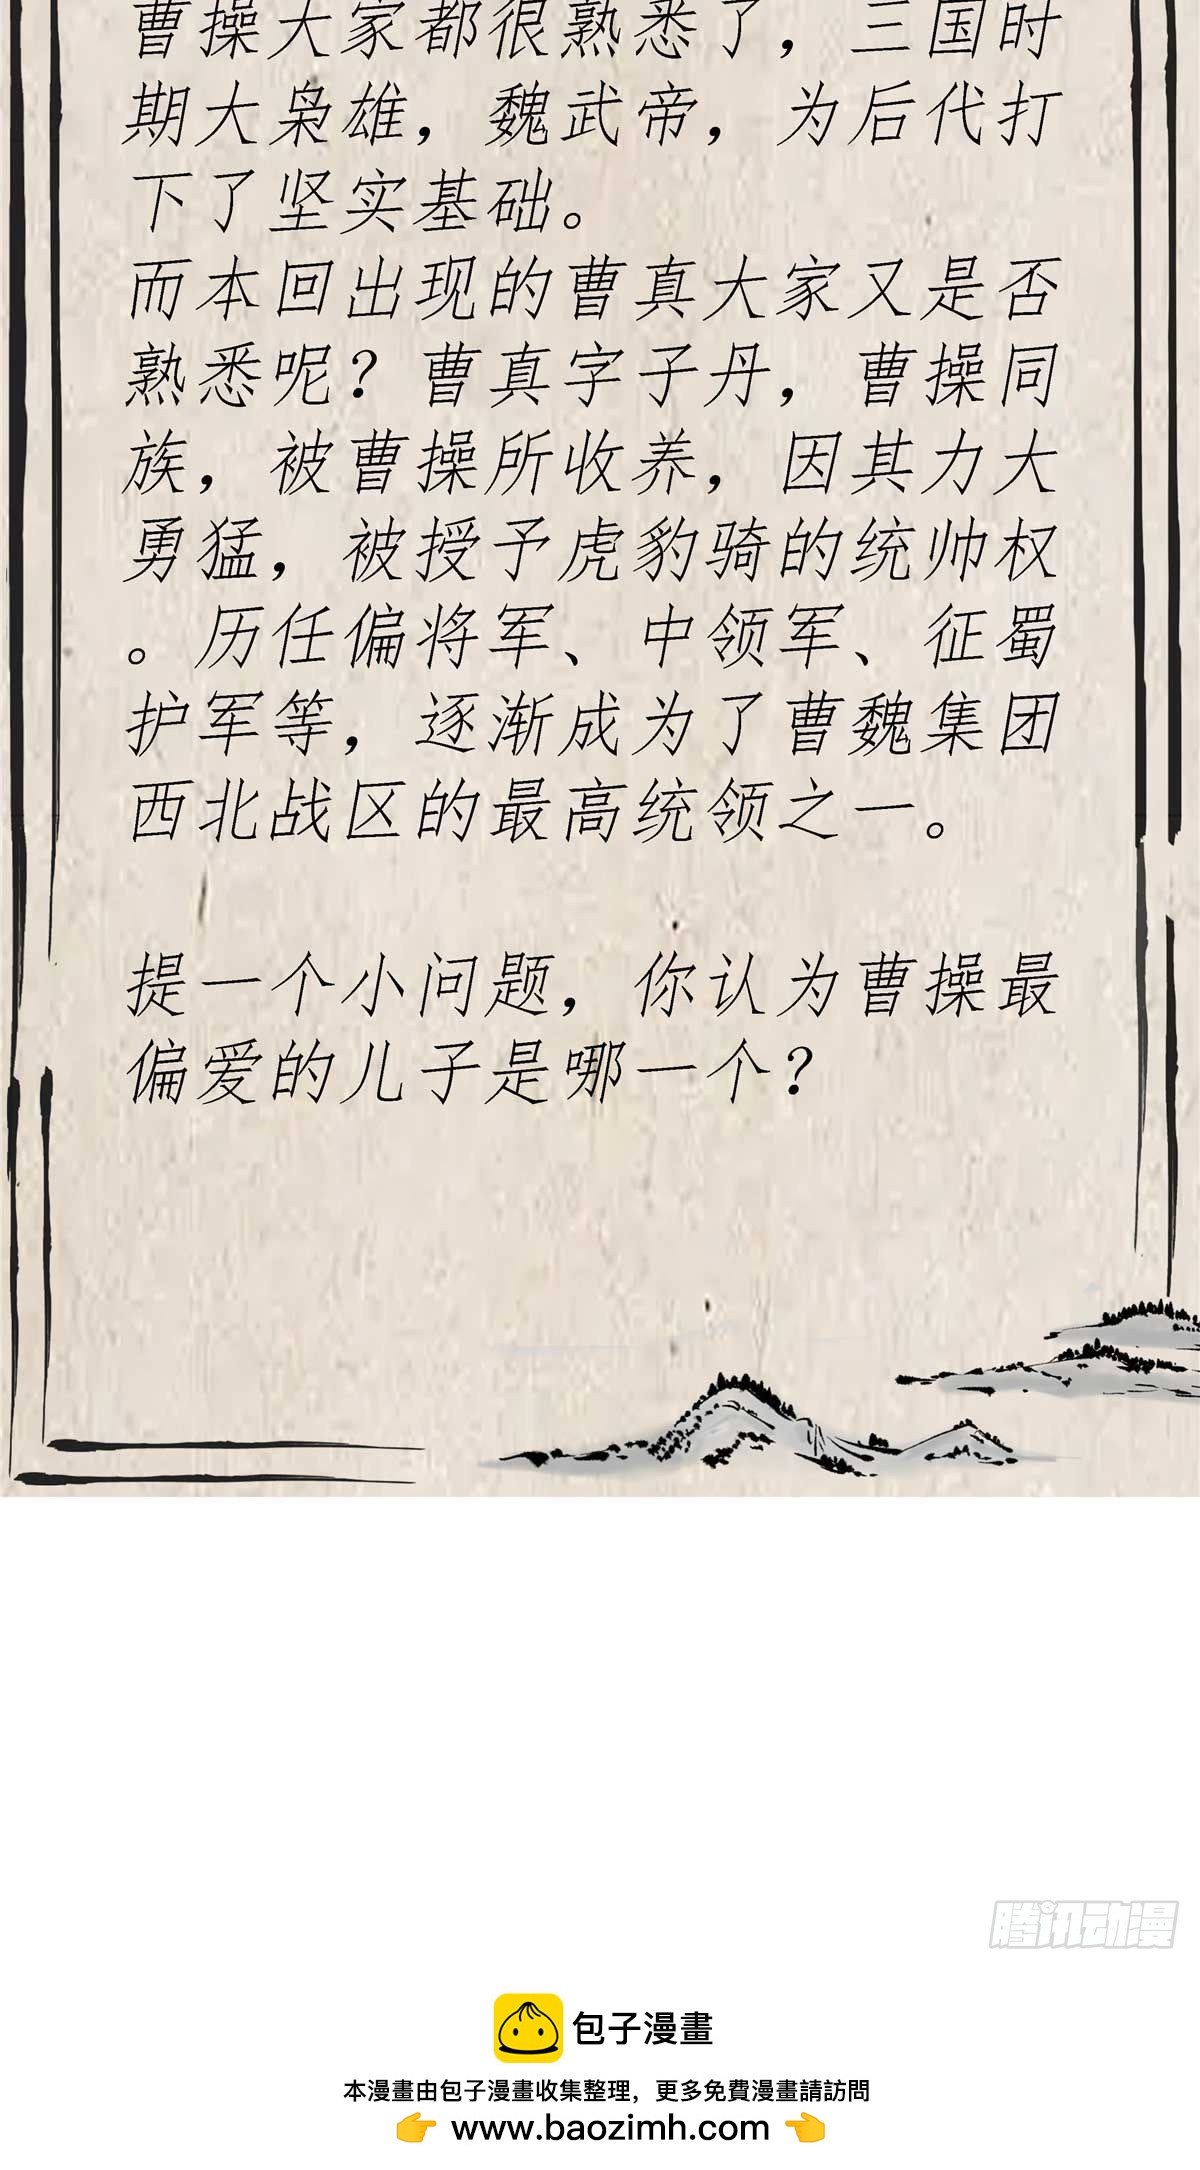 曹操大家都很熟悉了，三国时
期大枭雄，魏武帝，为后代打
下了坚实基础。
而本回出现的曹真大家又是否
熟悉呢？曹真字子丹，曹操同
族，被曹操所收养，因其力大
勇猛，被授予虎豹骑的统帅权
。历任偏将军、中领军、征蜀
护军等，逐渐成为了曹魏集团
西北战区的最高统领之一。
提一个小问题，你认为曹操最
偏爱的儿子是哪一个？
腾讯动漫
包子漫畫
本漫畫由包子漫畫收集整理，更多免費漫畫請訪問
www.baozimh.com